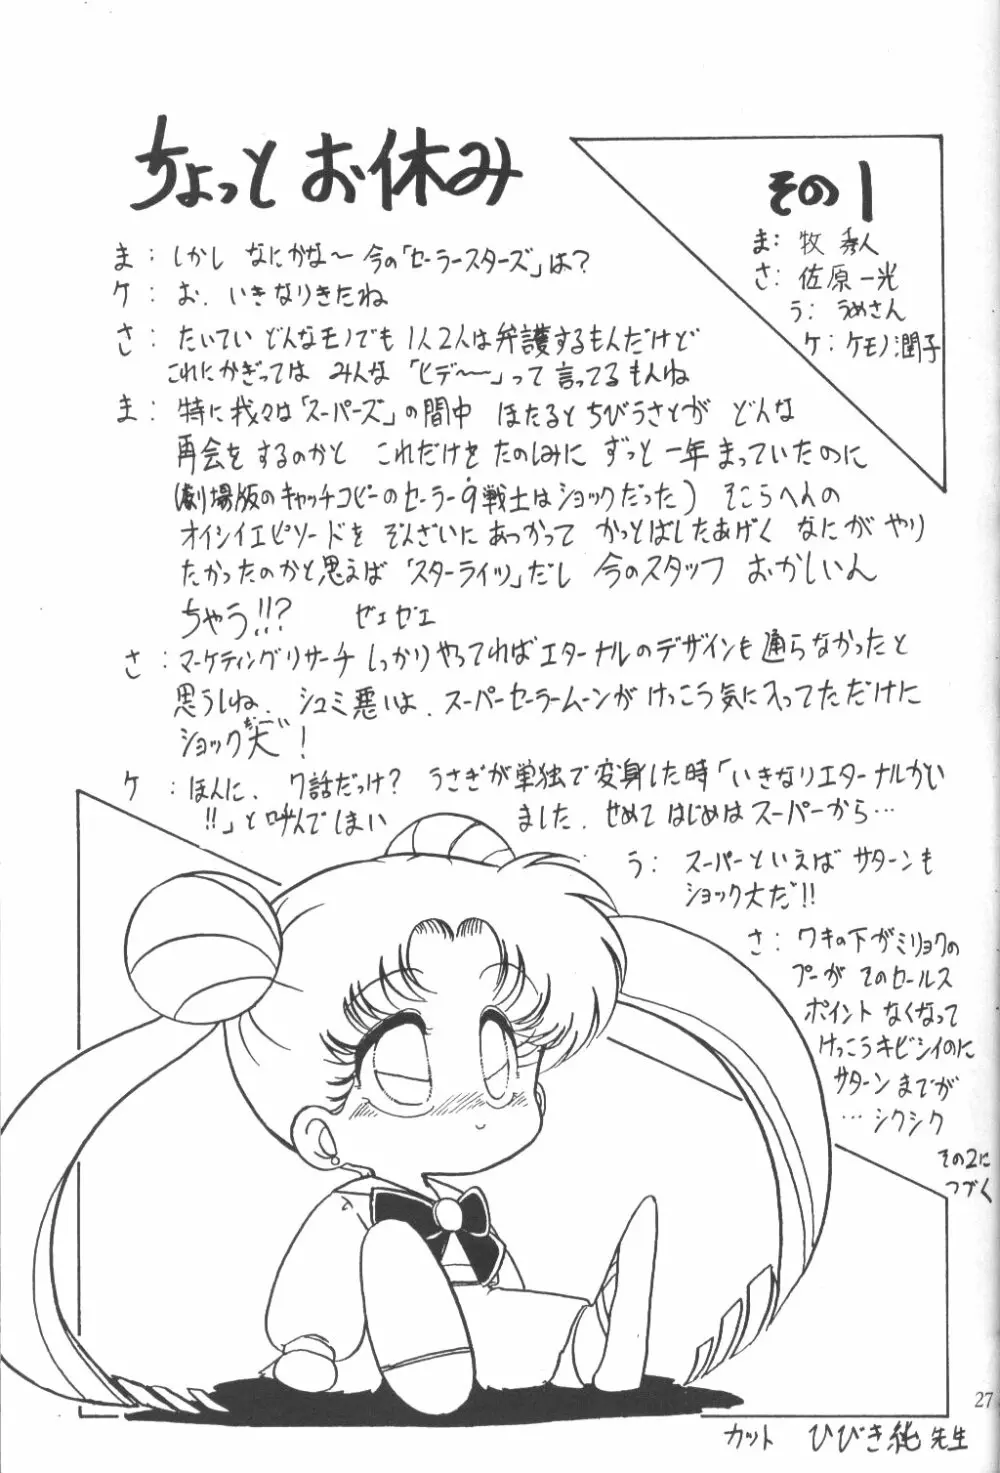 ちょっとお休み
その1
ま：牧 秀人
さ：佐原一光
う：うめさん
ケ：ケモノ潤子
ま：しかし なにかな〜 今の「セーラースターズ」は?
ケ：お、いきなりきたね
さ：たいてい どんなモノでも 1人2人は弁護するもんだけど
これにかぎっては みんな「ヒデ〜〜」って言ってるもんね
ま：特に我々は「スーパーズ」の間中 ほたるとちびうさとが どんな
再会をするのかと これだけをたのしみに ずっと一年まっていたのに
(劇場版のキャッチコピーのセーラー9戦士はショックだった) そこらへんの
オイシイエピソードを ぞんざいにあつかって かっとばしたあげく なにがやり
たかったのかと思えば「スターライツ」だし 今のスタッフ おかしいん
ちゃう!!? ゼェゼェ
さ：マーケティングリサーチしっかりやってればエターナルのデザインも通らなかったと
思うしね、シュミ悪いよ、スーパーセーラームーンがけっこう気に入ってただけに
ショック大!
だーい
ケ：ほんに、7話だっけ? うさぎが単独で変身した時「いきなりエターナルかい
!!」と呼んでしまい ました、せめてはじめはスーパーから…
う：スーパーといえば サターンも
ショック大だ!!
さ：ワキの下がミリョクの
プーが そのセールス
ポイントなくなって
けっこうキビシイのに
サターンまでが
…シクシク
その2に
つづく
27
カット ひびき純先生